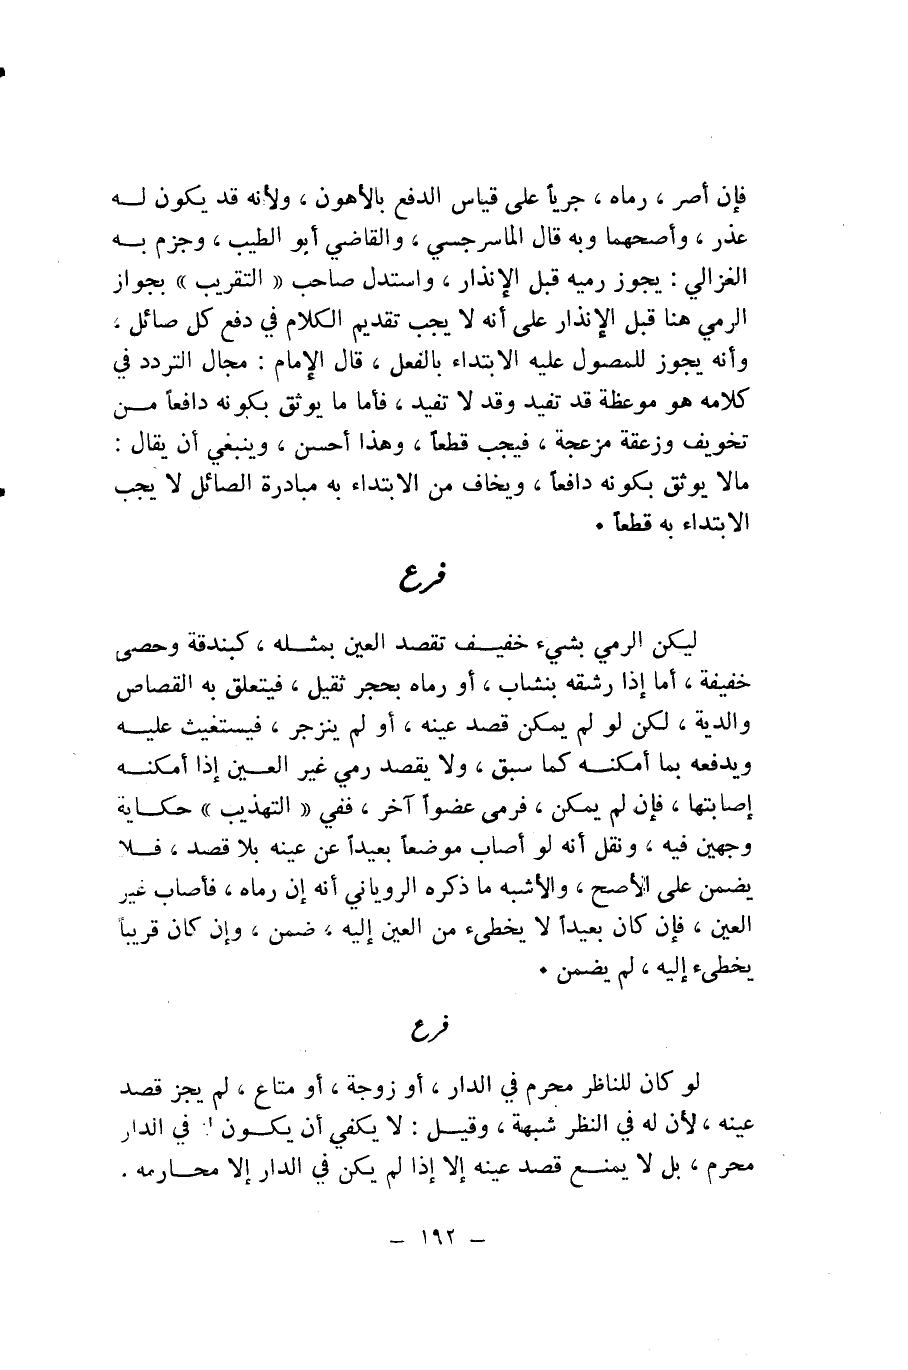 فإن أصر ، رماه ، جرياً على قياس الدفع بالأهون ، ولأنه قد يكون لـــه
عذر ، وأصحهما وبه قال الماسرجسي ، والقاضي أبو الطيب ، وجزم بــه
الغزالي : يجوز رميه قبل الإنذار ، واستدل صاحب « التقريب » بجواز
الرمي هنا قبل الإنذار على أنه لا يجب تقديم الكلام في دفع كل صائل ،
وأنه يجوز للمصول عليه الابتداء بالفعل ، قال الإمام : مجال التردد في
كلامه هو موعظة قد تفيد وقد لا تفيد ، فأما ما يوثق بكونه دافعاً مــن
تخويف وزعقة مزعجة ، فيجب قطعاً ، وهذا أحسن ، وينبغي أن يقال :
مالا يوثق بكونه دافعاً ، ويخاف من الابتداء به مبادرة الصائل لا يجب
الابتداء به قطعاً .
فرع
ليكن الرمي بشيء خفيــف تقصد العين بمثــله ، كبندقة وحصى
خفيفة ، أما إذا رشقه بنشاب ، أو رماه بحجر ثقيل ، فيتعلق به القصاص
والدية ، لكن لو لم يمكن قصد عينه ، أو لم ينزجر ، فيستغيث عليــه
ويدفعه بما أمكنــه كما سبق ، ولا يقصد رمي غير العــين إذا أمكنــه
إصابتها ، فإن لم يمكن ، فرمى عضواً آخر ، ففي « التهذيب » حكــاية
وجهين فيه ، ونقل أنه لو أصاب موضعاً بعيداً عن عينه بلا قصد ، فــلا
يضمن على الأصح ، والأشبه ما ذكره الروياني أنه إن رماه ، فأصاب غير
العين ، فإن كان بعيداً لا يخطىء من العين إليه ، ضمن ، وإن كان قريباً
يخطىء إليه ، لم يضمن .
فرع
لو كان للناظر محرم في الدار ، أو زوجة ، أو متاع ، لم يجز قصد
عينه ، لأن له في النظر شبهة ، وقيــل : لا يكفي أن يكــون في الدار
محرم ، بل لا يمنــع قصد عينه إلا إذا لم يكن في الدار إلا محــارمه .
– ١٩٢ –